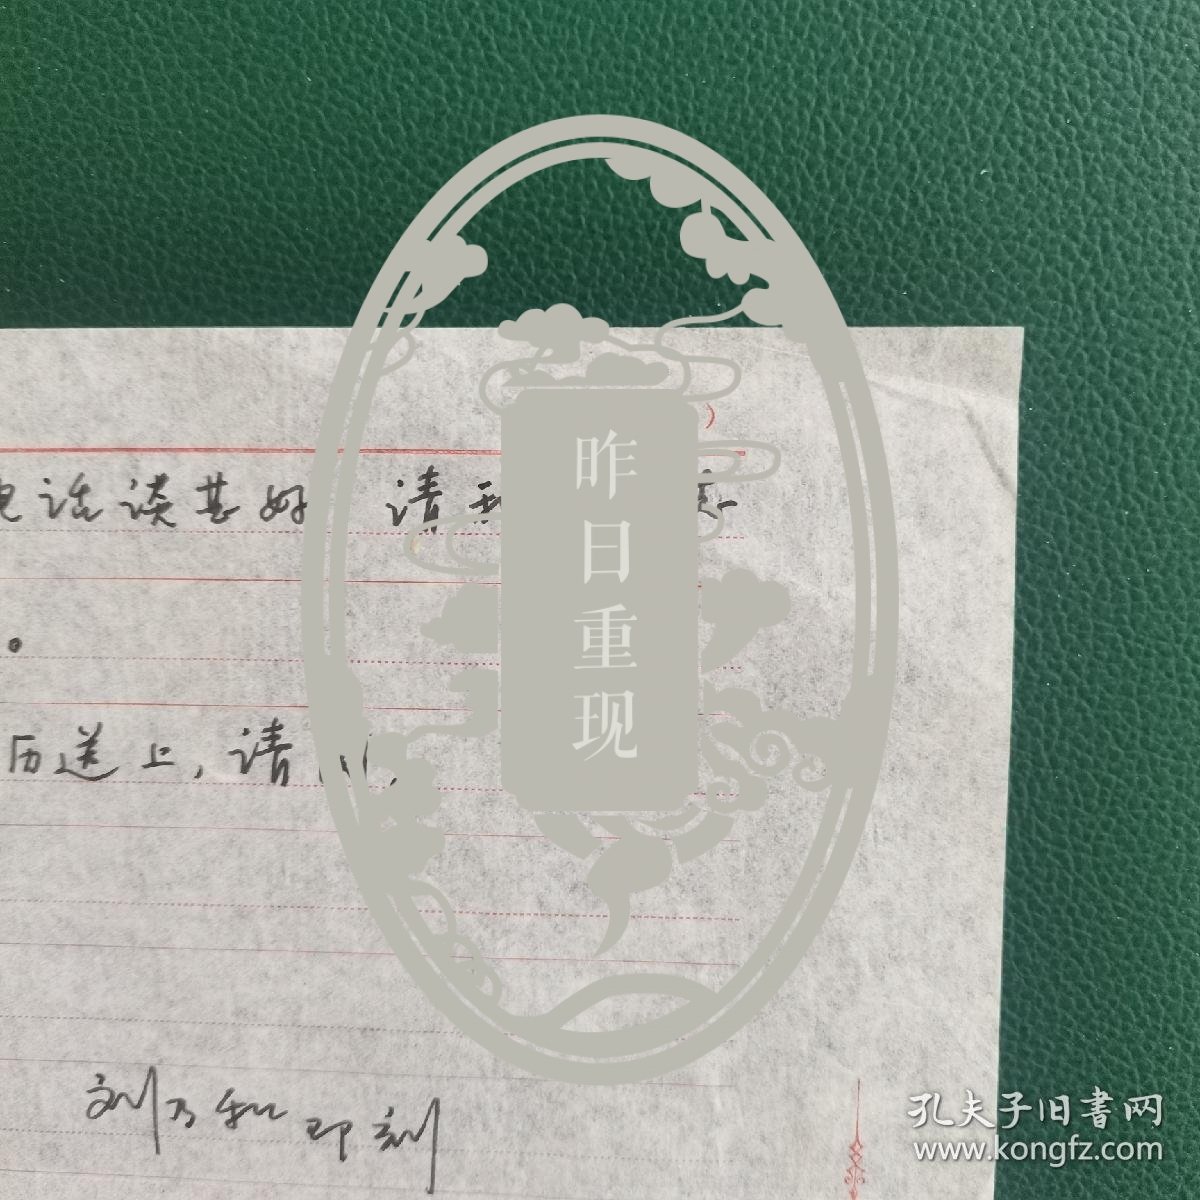 ）
电话谈甚好 请
。
历送上，请
刘乃和 即刻
昨日重现
孔夫子旧书网
www.kongfz.com